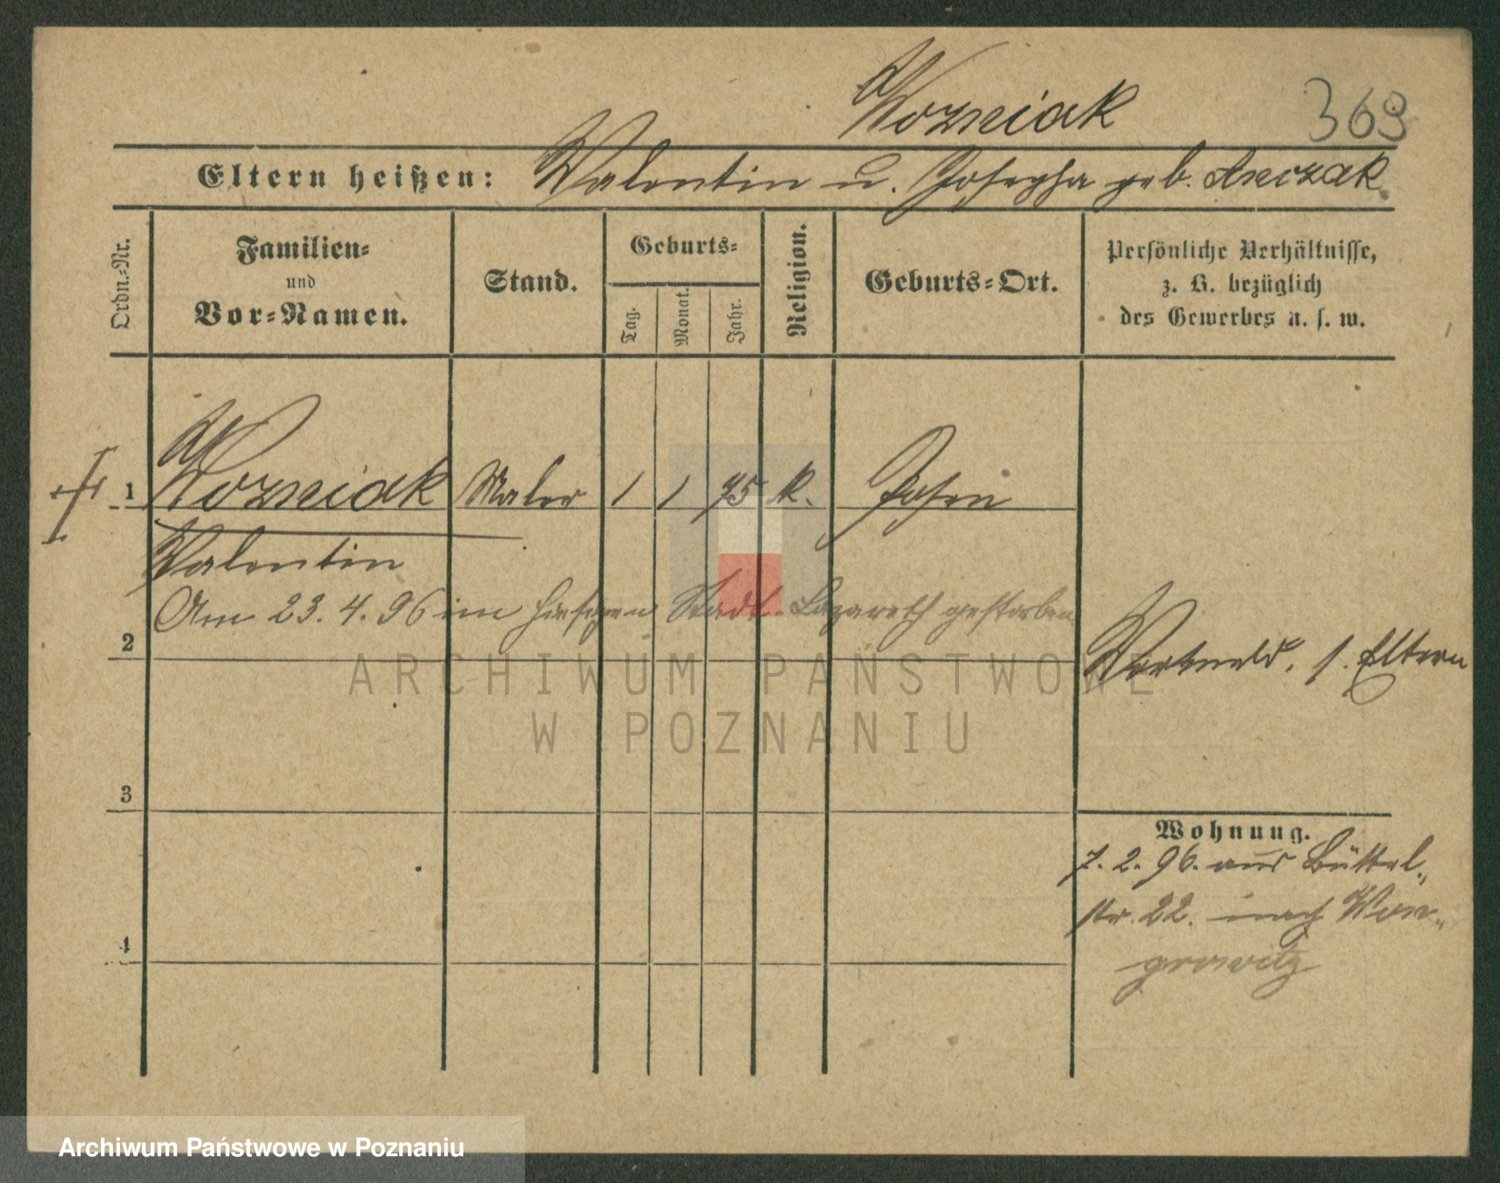 Wozniak
369
Eltern heißen: Valentin u. Josepha geb. Anczak
Ordn.-Nr.
Familien-
und
Vor-Namen.
Stand.
Geburts-
Tag.
Monat.
Jahr.
Religion.
Geburts-Ort.
Persönliche Verhältnisse,
z. B. bezüglich
des Gewerbes u. s. w.
1 Wozniak Maler 1 1 75 k. Posen
Valentin
Am 23.4.96 im hiesigen Stadt-Lazareth gestorben
2
s. Eltern
3
4
Wohnung.
7.2.96. aus Büttel-
str. 22. nach Won-
growitz
ARCHIWUM PAŃSTWOWE
W POZNANIU
Archiwum Państwowe w Poznaniu